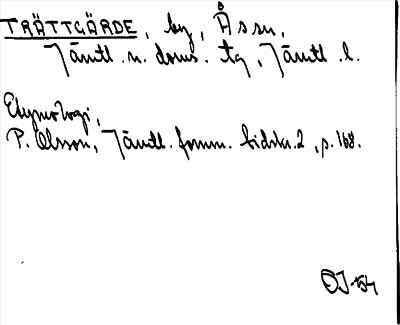 TRÄTTGÄRDE, by, Ås sn,
Jämtl. n. doms. tg, Jämtl. l.
Etymologi,
P. Olsson, Jämtl. fornm. tidskr. 2, p. 168.
OJ-54